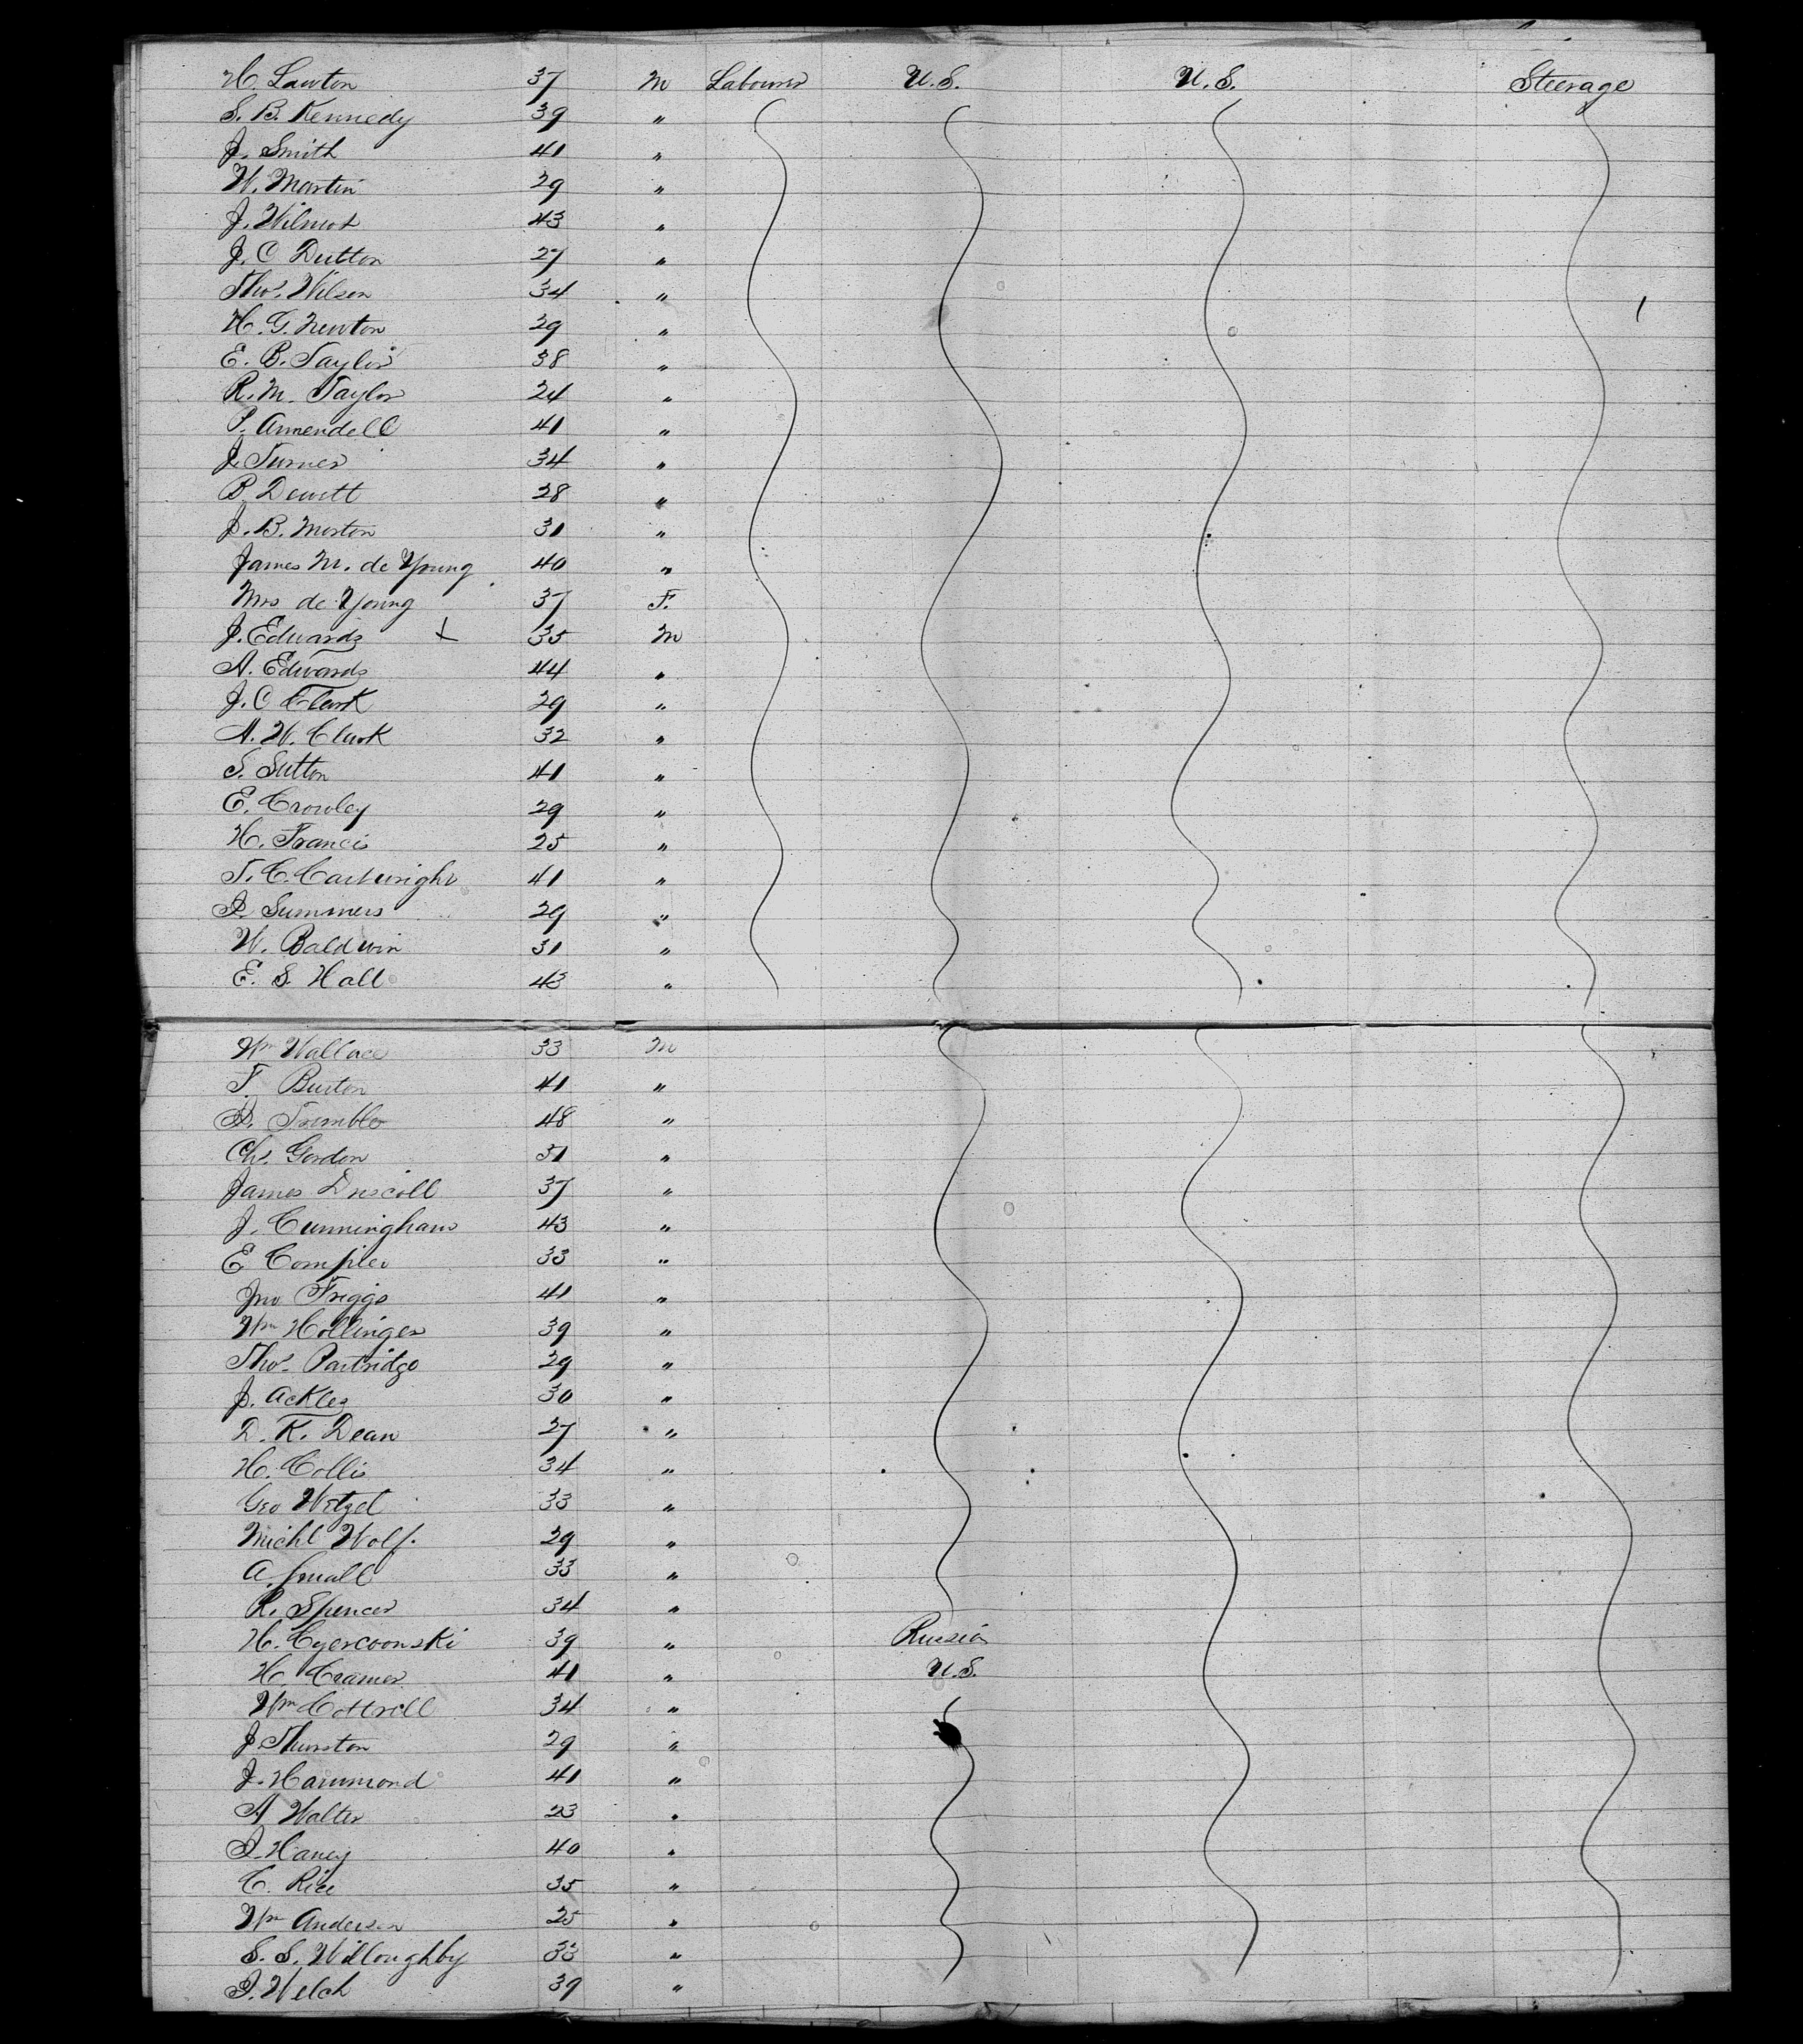 H. Lawton 37 M Labourer U.S. U.S. Steerage
S. B. Kennedy 39 "
J. Smith 41 "
W. Martin 29 "
J. Wilmot 43 "
J. C Dutton 27 "
Thos. Wilson 34 "
H. G. Newton 29 "
E. B. Taylor 38 "
R. M. Taylor 24 "
P. Armendell 41 "
J. Turner 34 "
B. Dewitt 28 "
J. B. Morton 31 "
James M. de Young 40 "
Mrs de Young 37 F.
J. Edwards 35 M
A. Edwards 44 "
J. C Clark 29 "
A. W. Clark 32 "
S. Sutton 41 "
E. Crowley 29 "
H. Francis 25 "
T. C. Cartwright 41 "
I. Summers 29 "
W. Baldwin 31 "
E. S. Hall 43 "
Wm Wallace 33 M
T. Burton 41 "
D. Trembler 48 "
Chs. Gordon 31 "
James Driscoll 37 "
J. Cunningham 43 "
E Compler 33 "
Jno Friggs 41 "
Wm Hollinger 39 "
Thos. Partridge 29 "
J. Ackles 30 "
D. K. Dean 27 "
H. Collis 34 "
Geo Wetzel 33 "
Michl Wolf. 29 "
A. Small 33 "
R. Spencer 34 "
H. Cyercoonski 39 " Russia
H. Cramer 41 " U.S.
Wm Cottrell 34 "
J. Thurston 29 "
J. Hammond 41 "
A Walter 23 "
I. Haney 40 "
C. Rice 35 "
Wm Anderson 25 "
S. S. Willoughby 33 "
I. Welch 39 "